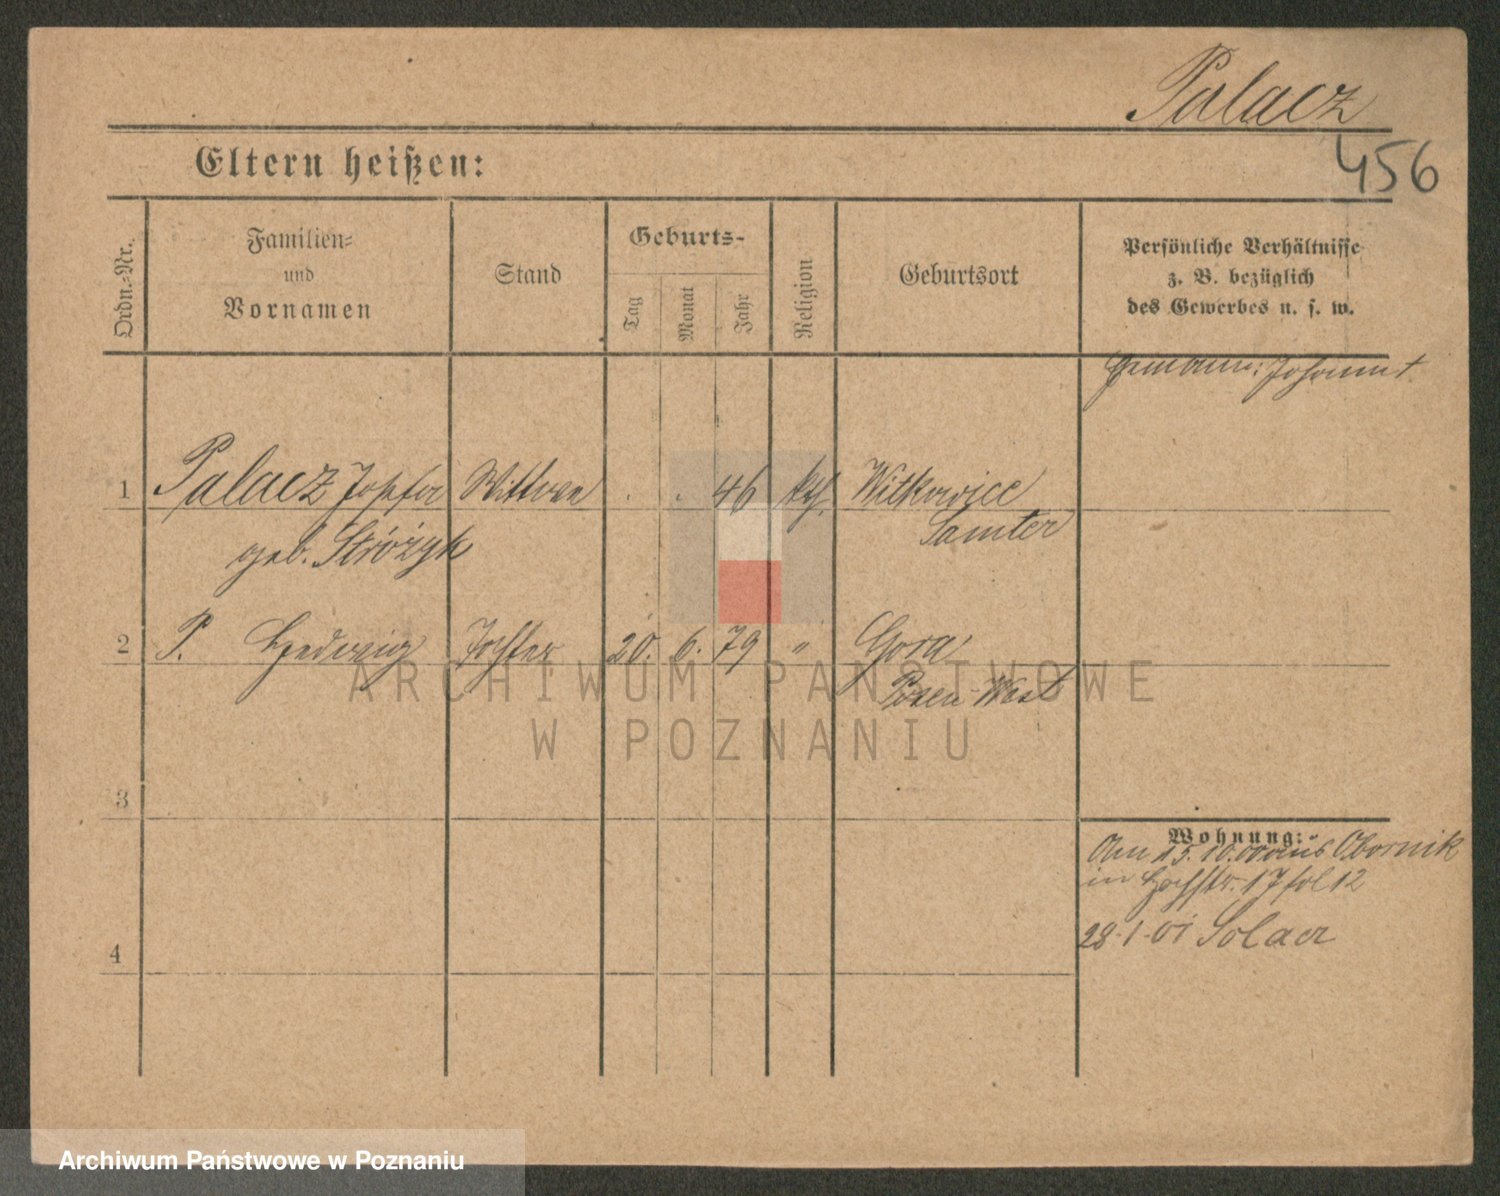 Palacz
456
Eltern heißen:
Ordn.-Nr.
Familien-
und
Vornamen
Stand
Geburts-
Tag
Monat
Jahr
Religion
Geburtsort
Persönliche Verhältnisse
z. B. bezüglich
des Gewerbes u. s. w.
Johann †
1 Palacz Josefa Wittwe . . 46 kth. Wilkowice
geb. Stróżyk Samter
2 P. Hedwig Tochter 20. 6. 79 " Gora
Posen West
3
4
Wohnung:
Am 15. 10. 00 aus Obornik
in Hochstr. 17 fol 12
28-1-01 Solacz
ARCHIWUM PAŃSTWOWE
W POZNANIU
Archiwum Państwowe w Poznaniu